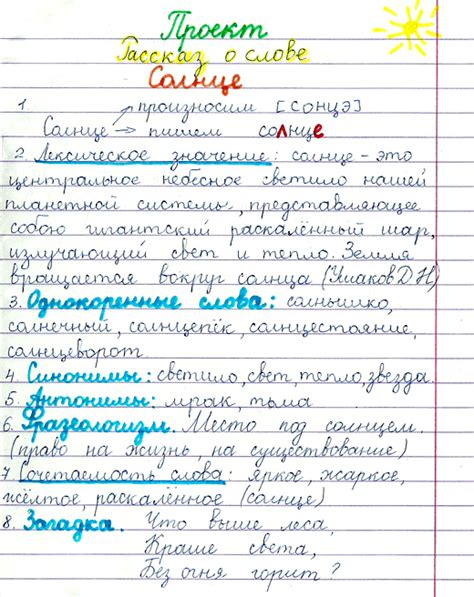 Проект
Рассказ о слове
Солнце
1. произносим [сонцэ]
Солнце → пишем солнце
2. Лексическое значение: солнце – это
центральное небесное светило нашей
планетной системы, представляющее
собою гигантский раскалённый шар,
излучающий свет и тепло. Земля
вращается вокруг солнца (Ушаков Д Н)
3. Однокоренные слова: солнышко,
солнечный, солнцепёк, солнцестояние,
солнцеворот
4. Синонимы: светило, свет, тепло, звезда.
5. Антонимы: мрак, тьма
6. Фразеологизм. Место под солнцем.
(право на жизнь, на существование)
7 Сочетаемость слова: яркое, жаркое,
жёлтое, раскалённое (солнце)
8. Загадка. Что выше леса,
Краше света,
Без огня горит?